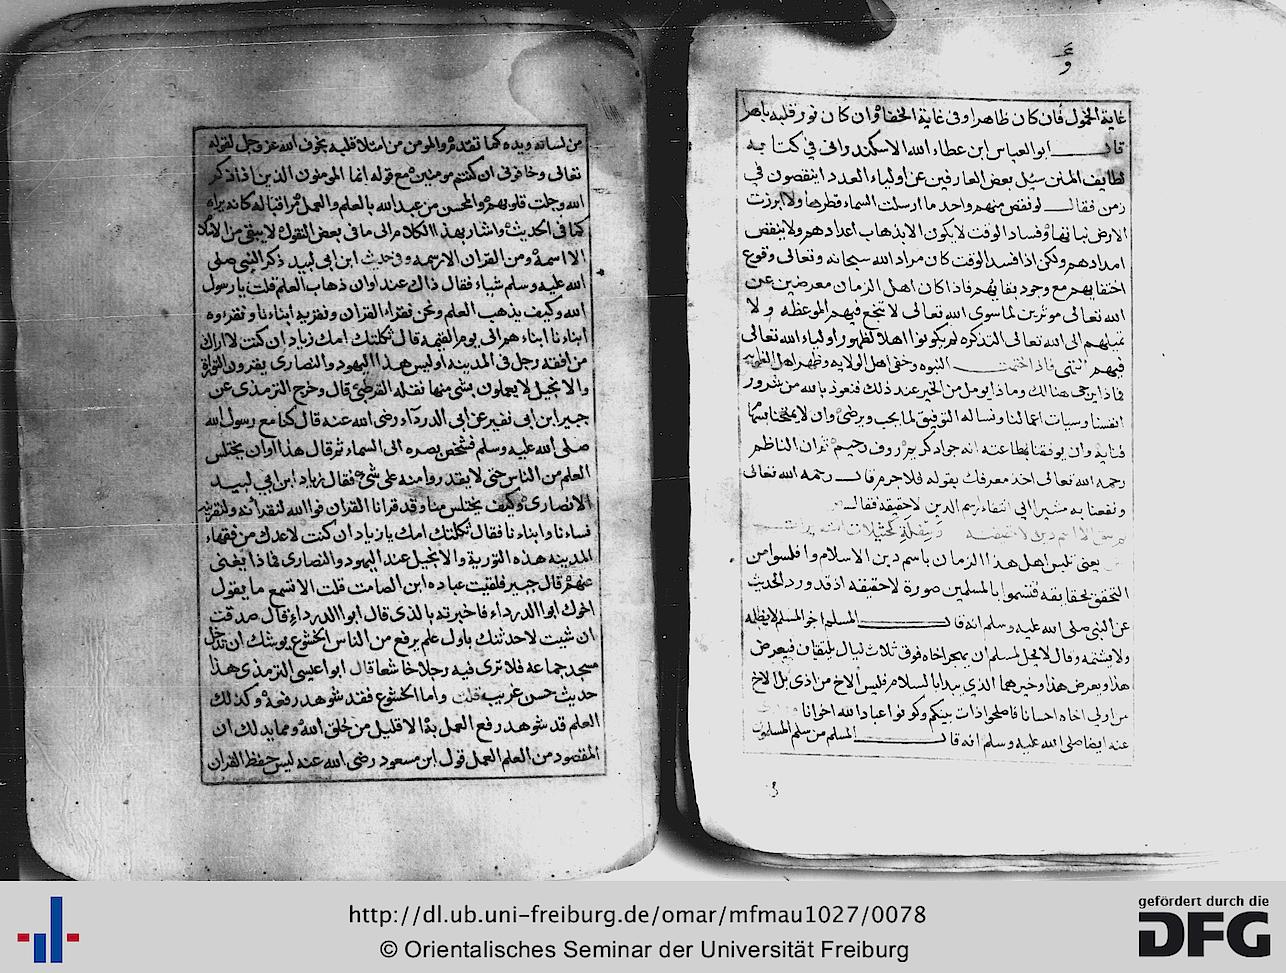 غاية الخمول فان كان ظاهرا وفي غاية الخفا وان كان نور قلبه باهر
قال ابو العباس ابن عطاء الله الاسكندراني في كتابه
لطايف المنن سئل بعض العارفين عن اولياء العدد اينقصون في
زمن فقال لو نقص منهم واحد ما ارسلت السماء قطرها ولا ابرزت
الارض نباتها وفساد الوقت لا يكون الا بذهاب اعدادهم ولا بنقص
امدادهم ولكن اذا فسد الوقت كان مراد الله سبحانه وتعالى وقوع
اختفايهم مع وجود بقايهم فاذا كان اهل الزمان معرضين عن
الله تعالى موثرين لما سوى الله تعالى لا تنجع فيهم الموعظه ولا
تميلهم الى الله تعالى التذكره لم يكونوا اهلا لظهور اولياء الله تعالى
فيهم انتهى فاذا اختمت النبوه وخفى اهل الولايه وظهر اهل
فماذا يرجى هنالك وماذا يومل من الخير عند ذلك فنعوذ بالله من شرور
انفسنا وسيات اعمالنا ونساله التوفيق لما يحب ويرضى وان لا يمتحنا
وان يوفقنا بطاعته انه جواد كريم رءوف رحيم ثم ان الناظم
رحمه الله تعالى اخذ معرفك بقوله فلا جرم قال رحمه الله تعالى
ونفعنا به مشيرا الى انتفاء رسم الدين لا حقيقة فقال
يعنى تلبس اهل هذا الزمان باسم دين الاسلام وافلسوا من
التحقق بحقايقه فتسموا بالمسلمين صورة لا حقيقه اذ قد ورد الحديث
عن النبي صلى الله عليه وسلم انه قال المسلم اخو المسلم لا يظلمه
ولا يشتمه وقال لا يحل لمسلم ان يهجر اخاه فوق ثلاث ليال يلتقيان فيعرض
هذا ويعرض هذا وخيرهما الذي يبدا بالسلام فليس الاخ من اذى بل الاخ
من اولى اخاه احسانا فاصلحوا ذات بينكم وكونوا عباد الله اخوانا
عنه ايضا صلى الله عليه وسلم انه قال المسلم من سلم المسلمون
من لسانه ويده كما تقدم والمومن من امتلا قلبه بخوف الله عز وجل لقوله
تعالى وخافونى ان كنتم مومنين مع قوله انما المومنون الذين اذا ذكر
الله وجلت قلوبهم والمحسن من عبد الله بالعلم والعمل مراقبا له كانه يراه
كما في الحديث واشار بهذا الكلام الى ما في بعض النقول لا يبقى من الاسلام
الا اسمه ومن القران الا رسمه وفي حديث ابن ابي لبيد ذكر النبي صلى
الله عليه وسلم شياء فقال ذاك عند اوان ذهاب العلم قلت يا رسول
الله وكيف يذهب العلم ونحن نقراء القران ونقريه ابناءنا وتقروه
ابناءنا ابناءهم الى يوم القيمه قال ثكلتك امك زياد ان كنت لاراك
من افقه رجل في المدينه اوليس هذا اليهود والنصارى يقرون التوراة
والانجيل لا يعملون بشى منها نقله القرطبي قال وخرج الترمذى عن
جبير ابن ابي نفير عن ابي الدرداء رضى الله عنه قال كنا مع رسول الله
صلى الله عليه وسلم فشخص بصره الى السماء ثم قال هذا اوان يختلس
العلم من الناس حتى لا يقدروا منه على شىء فقال زياد ابن ابي لبيد
الانصارى وكيف يختلس منا وقد قرانا القران فوالله لنقرانه ولنقرينه
نساءنا وابناءنا فقال ثكلتك امك يا زياد ان كنت لاعدك من فقهاء
المدينه هذه التورية والانجيل عند اليهود والنصارى فماذا يغنى
عنهم قال جبير فلقيت عباده ابن الصامت قلت الا تسمع ما يقول
اخوك ابوا الدرداء فاخبرته بالذى قال ابوا الدرداء قال صدقت
ان شيت لاحدثنك باول علم يرفع من الناس الخشوع يوشك ان تدخل
مسجد جماعه فلا ترى فيه رجلا خاشعا قال ابوا عيسى الترمذى هذا
حديث حسن غريب قلت واما الخشوع فقد شوهد رفعه وكذلك
العلم قد شوهد رفع العمل به الا قليل من خلق الله ومما يدلك ان
المقصود من العلم العمل قول ابن مسعود رضى الله عنه ليس حفظ القران
http://dl.ub.uni-freiburg.de/omar/mfmau1027/0078
© Orientalisches Seminar der Universität Freiburg
gefördert durch die
DFG